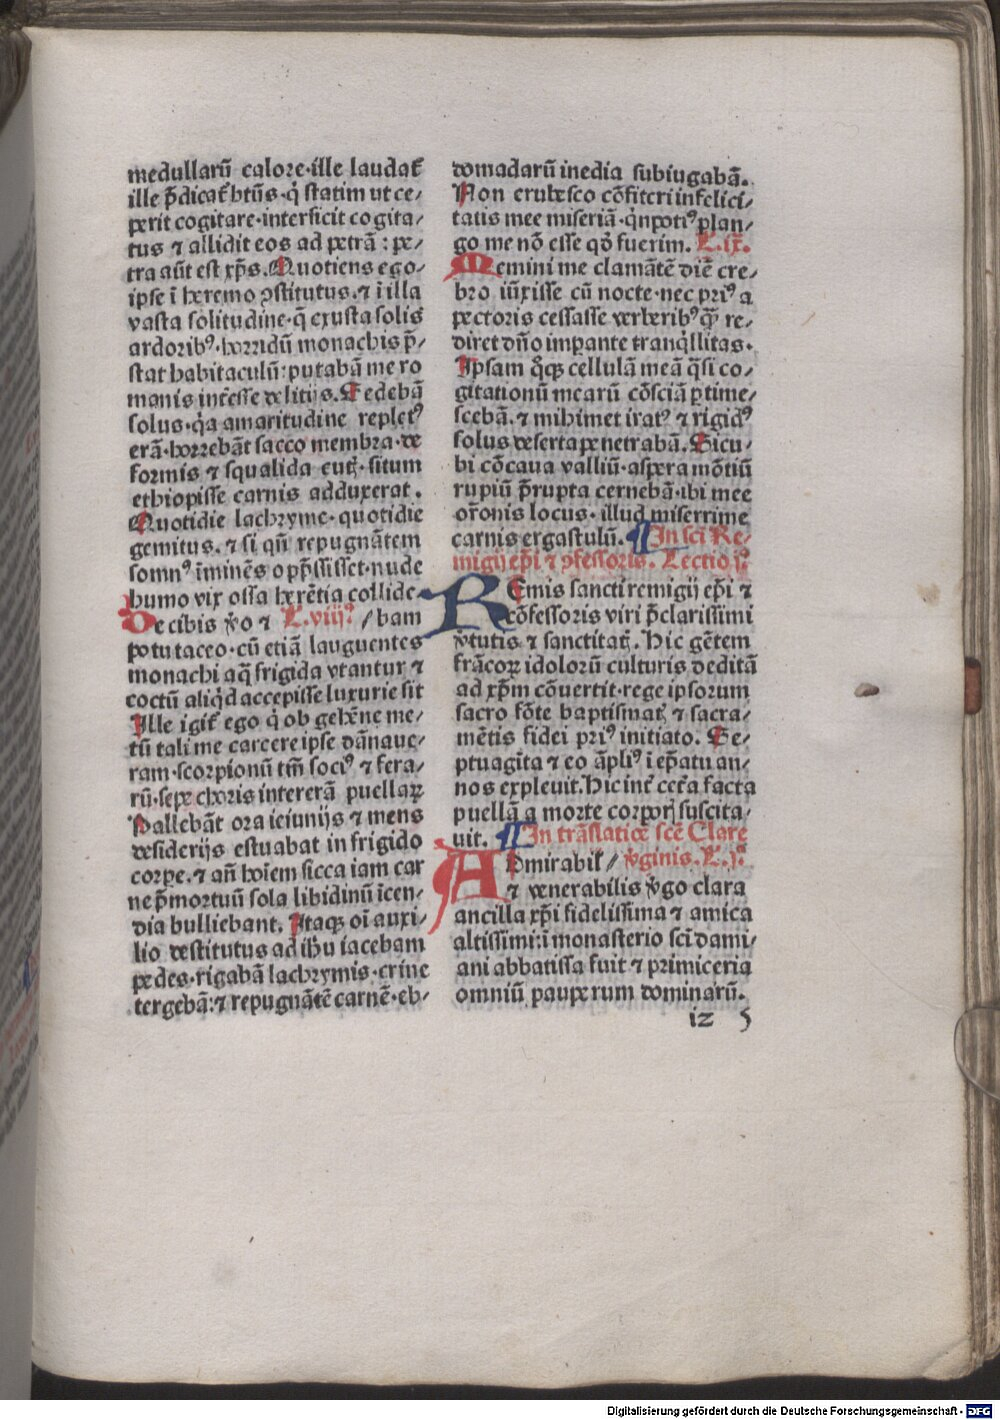 medullarū calore·ille laudat᷑
ille p̄dicat᷑ btūs·q̇ statim ut ce/
perit cogitare·interficit cogita/
tus ⁊ allidit eos ad petrā : pe/
tra aūt est xp̄s. Quotiens ego·
ipse ī heremo ꝯstitutus.⁊ ī illa
vasta solitudine·q̄ exusta solis
ardoribꝰ·horridū monachis p̄/
stat habitaculū:putabā me ro
manis int̄esse delitijs. Sedebā
solus·q̇a amaritudine repletꝰ
erā·horrebāt sacco membra·de
formis ⁊ squalida cutꝭ·situm
ethiopisse carnis adduxerat.
Quotidie lachryme·quotidie
gemitus.⁊ si qn̄ repugnātem
somnꝰ īminēs opp̄ssisset·nude
humo vix ossa herētia collide·
De cibis v̄o ⁊ L.viijꝰ /bam
potu taceo·cū etiā languentes
monachi aq̄ frigida vtantur ⁊
coctū aliq̇d accepisse luxurie sit
Ille igit᷑ ego q̇ ob gehēne me/
tū tali me carcere ipse dānaue/
ram·scorpionū tm̄ sociꝰ ⁊ fera/
rū·sepe choris intererā puellaꝝ
Pallebāt ora ieiunijs ⁊ mens
desiderijs estuabat in frigido
corpe.⁊ an̄ hoīem sicca iam car
ne p̄mortuū sola libidinū īcen/
dia bulliebant. Itaqꝫ oī auxi/
lio destitutus ad ih̄u iacebam
pedes·rigabā lachrymis·crine
tergebā:⁊ repugnātē carnē·eb/
domadarū inedia subiugabā.
Non erubesco cōfiteri infelici/
tatis mee miseriā·q̇npotiꝰ plan/
go me nō esse qđ fuerim. L.ix̄.
Memini me clamātē diē cre/
bro iūxisse cū nocte·nec priꝰ a
pectoris cessasse verberibꝰ qꝫ re/
diret dn̄o imperante tranq̇llitas.
Ipsam q̊qꝫ cellulā meā q̄si co/
gitationū mearū cōsciā ꝑtime/
scebā.⁊ mihimet iratꝰ ⁊ rigidꝰ
solus deserta penetrabā. Sicu/
bi cōcaua valliū·aspera mōtiū
rupiū p̄rupta cernebā·ibi mee
or̄onis locus·illud miserrime
carnis ergastulū. ¶In sci̅ Re/
migij ep̄i ⁊ ꝯfessoris. Lectio jꝰ
REmis sancti remigij ep̄i ⁊
cōfessoris viri p̄clarissimi
v̄tutis ⁊ sanctitatꝭ. Hic gētem
frācoꝝ idolorū culturis deditā
ad xp̄m cōuertit·rege ipsorum
sacro fōte baptismatꝭ ⁊ sacra/
mētis fidei priꝰ initiato. Se/
ptuagīta ⁊ eo āpliꝰ ī ep̄atu an/
nos expleuit. Hic int̄ cet̄a facta
puellā a morte corporꝭ suscita/
uit. ¶In trāslatiōe sc̄e Clare
ADmirabil̄ / v̄ginis. L.jꝰ
⁊ venerabilis v̄go clara
ancilla xp̄i fidelissima ⁊ amica
altissimi:ī monasterio sci̅ dami/
ani abbatissa fuit ⁊ primiceria
omniū pauperum dominarū.
iz 5